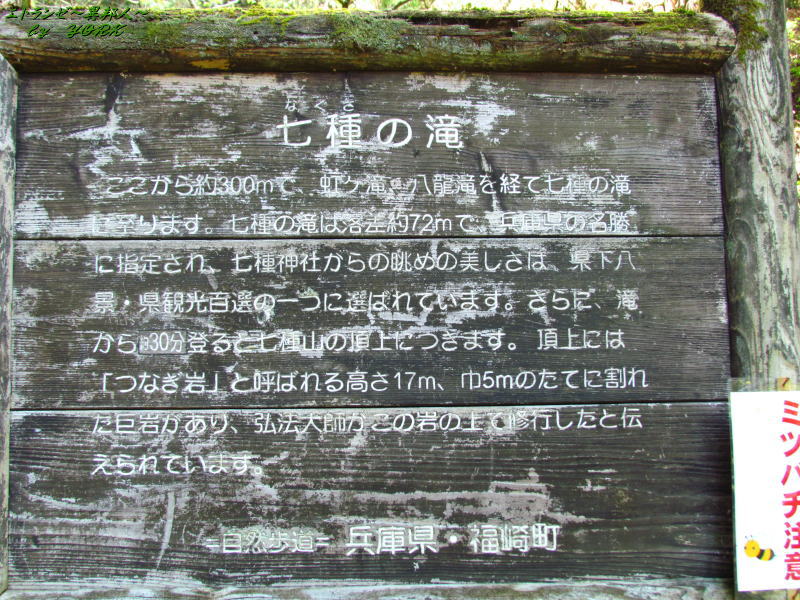 エトランゼー異邦人～
by YORK
なくさ
七種の滝
ここから約300mで、虹ケ滝、八龍滝を経て七種の滝
に至ります。七種の滝は落差約72mで、兵庫県の名勝
に指定され、七種神社からの眺めの美しさは、県下八
景・県観光百選の一つに選ばれています。さらに、滝
から約30分登ると七種山の頂上につきます。頂上には
「つなぎ岩」と呼ばれる高さ17m、巾5mのたてに割れ
た巨岩があり、弘法大師がこの岩の上で修行したと伝
えられています。
=自然歩道= 兵庫県・福崎町
ミツバチ注意